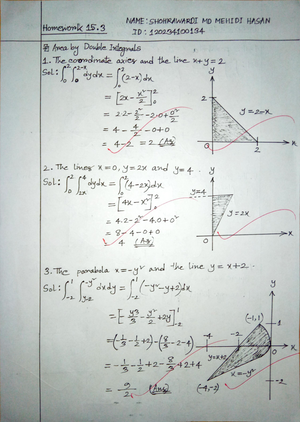 Homework 15.3
NAME: SHOHRAWARDI MD MEHIDI HASAN
ID: 120294100134
# Area by Double Integrals
1. The coordinate axes and the line x+y = 2
Sol: ∫₀² ∫₀^(2-x) dydx = ∫₀² (2-x)dx
= [2x - x²/2]₀²
= 2·2 - 2²/2 - 2·0 + 0²/2
= 4 - 4/2 - 0 + 0
= 4-2 = 2 (Ans)
y
2
y = 2-x
0
2
x
2. The lines x=0, y=2x and y=4.
Sol: ∫₀² ∫₂ₓ⁴ dydx = ∫₀² (4-2x)dx
= [4x - x²]₀²
= 4·2 - 2² - 4·0 + 0²
= 8 - 4 - 0 + 0
= 4 (Ans)
y
y=4
y = 2x
0
x
3. The parabola x=-y² and the line y = x+2.
Sol: ∫₋₂¹ ∫_(y-2)^(-y²) dxdy = ∫₋₂¹ (-y²-y+2)dx
= [-y³/3 - y²/2 + 2y]₋₂¹
= (-1/3 - 1/2 + 2) - (8/3 - 2 - 4)
= -1/3 - 1/2 + 2 - 8/3 + 2 + 4
= 9/2 (Ans)
y
(-1,1)
1
-4
-2
0
x
y=x+2
x=-y²
(-4,-2)
-2